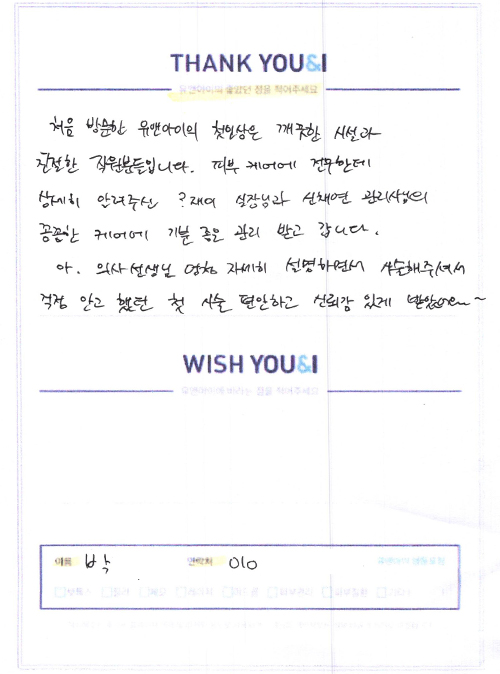 THANK YOU&I
유앤아이의 좋았던 점을 적어주세요
처음 방문한 유앤아이의 첫인상은 깨끗한 시설과
친절한 직원분들입니다. 피부 케어에 전무한데
상세히 알려주신 ?재이 실장님과 신채연 관리사님의
꼼꼼한 케어에 기분 좋은 관리 받고 갑니다.
아. 의사선생님 엄청 자세히 설명하면서 시술해주셔서
걱정 안고 했던 첫 시술 편안하고 신뢰감 있게 받았어요~
WISH YOU&I
유앤아이에 바라는 점을 적어주세요
이름 박 연락처 010